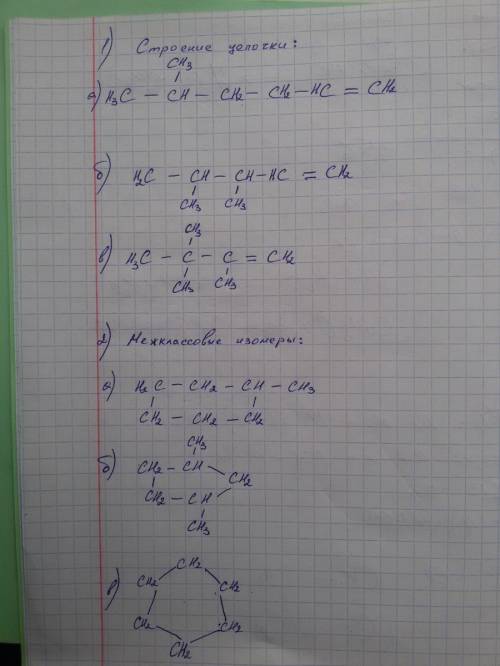 1) Строение цепочки:
CH3
а) H3C – CH – CH2 – CH2 – HC = CH2
б) H2C – CH – CH – HC = CH2
CH3 CH3
CH3
в) H3C – C – C = CH2
CH3 CH3
2) Межклассовые изомеры:
а) H2C – CH2 – CH – CH3
CH2 – CH2 – CH2
CH3
б) CH2 – CH
CH2
CH2 – CH
CH3
CH2
в) CH2 CH2
CH2 CH2
CH2